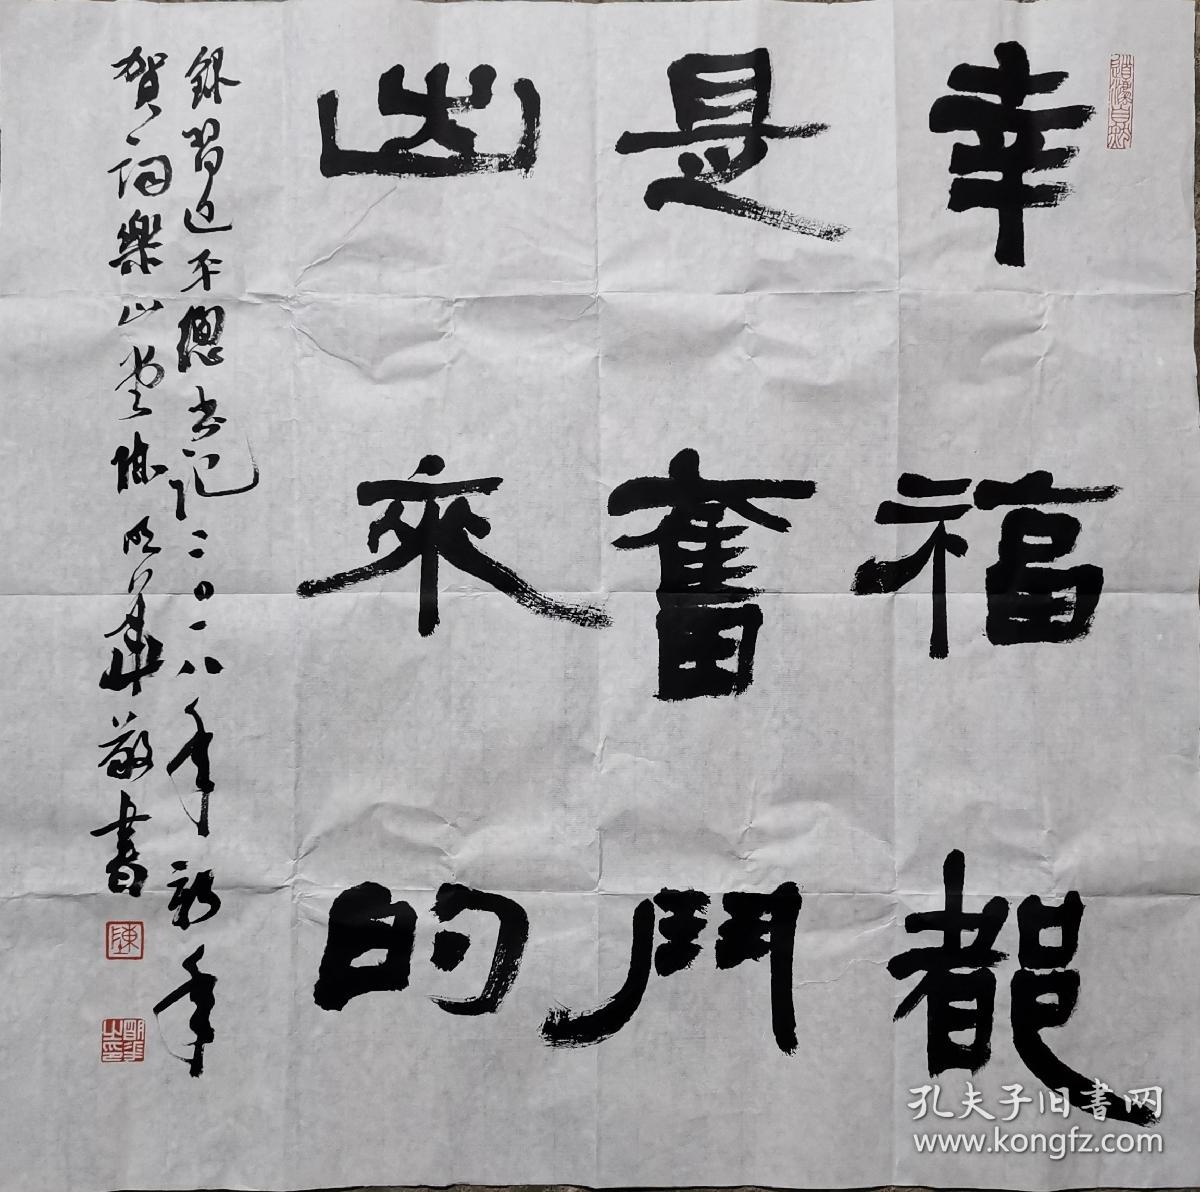 幸福都
是奮鬥
出來的
錄習近平總书记二〇一八年新年
賀词樂山堂陈明華敬書
陳
孔夫子旧書网
www.kongfz.com